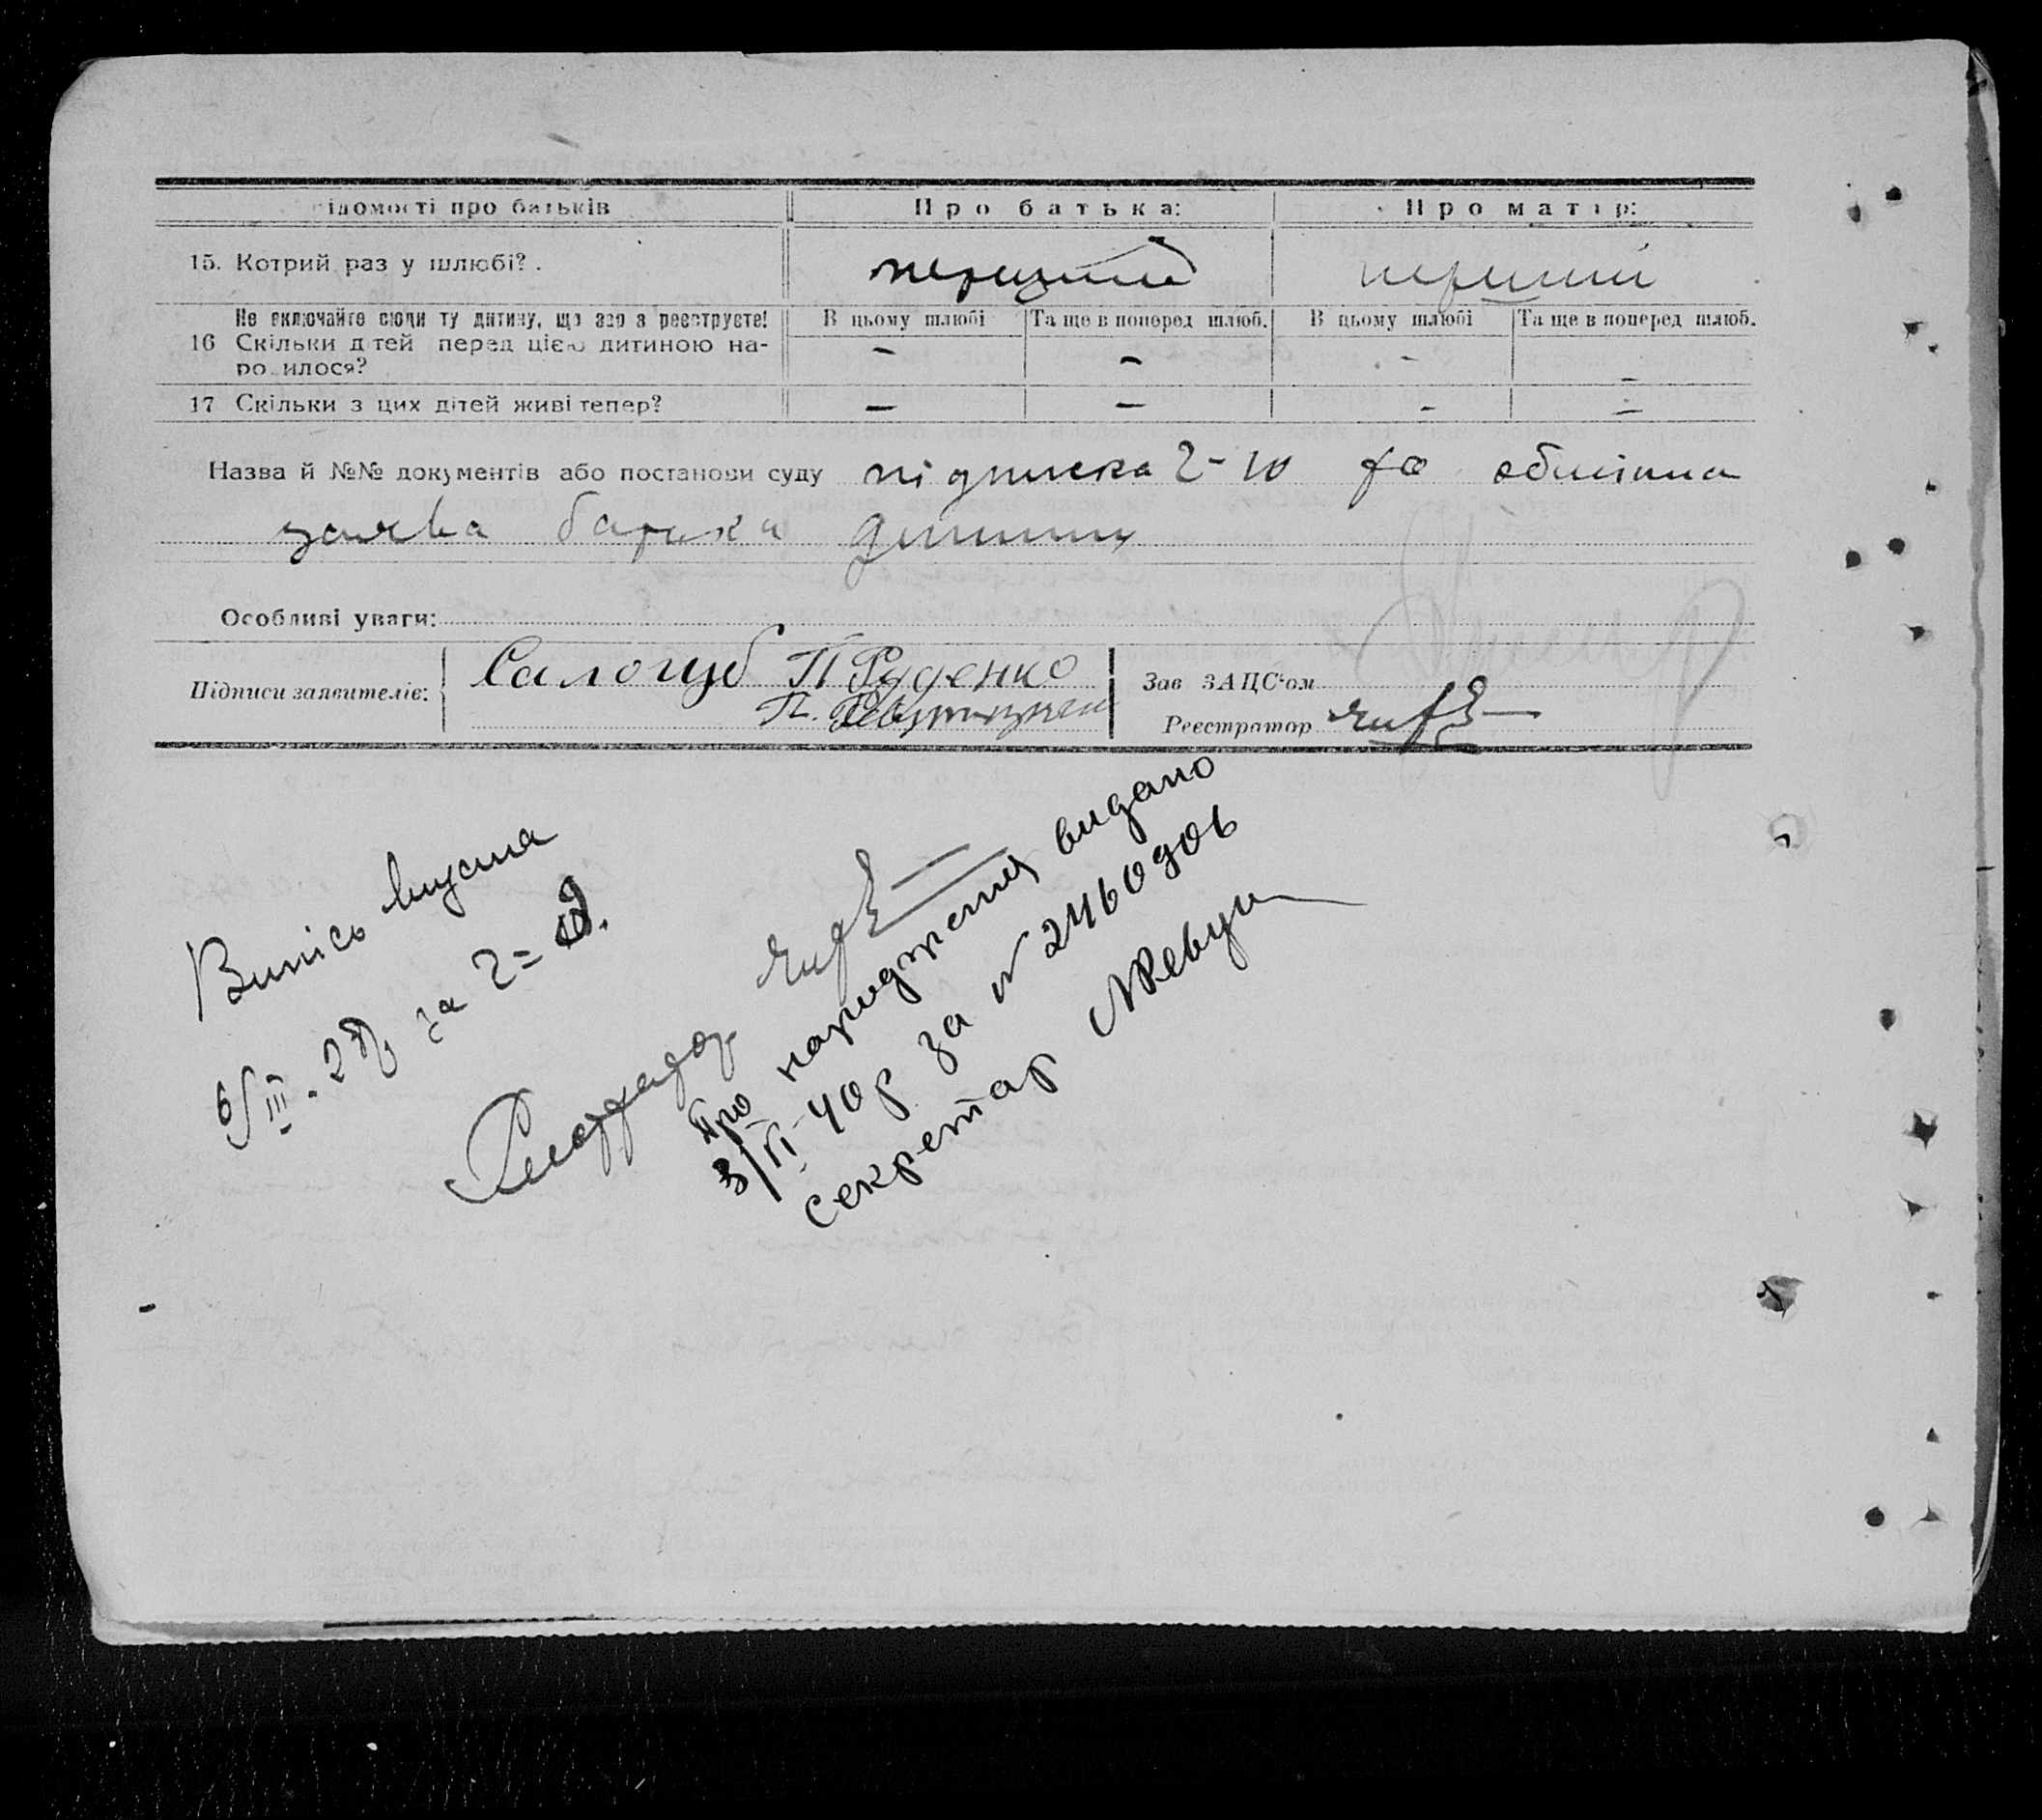 ідомості про батьків Про батька: Про матір:
15. Котрий раз у шлюбі? . перший перший
Не включайте сюди ту дитину, що зар з реєструєте! В цьому шлюбі Та ще в поперед шлюб. В цьому шлюбі Та ще в поперед шлюб.
16 Скільки дітей перед цією дитиною на- - - - -
ро илося?
17 Скільки з цих дітей живі тепер? - - - -
Назва й №№ документів або постанови суду підписка 2-10 та
заява батька дитини
Особливі уваги:
Підписи заявителів: Салогуб П Руденко
П.
Зав ЗАЦС‘ом
Реєстратор
Випісь видана
6/III-28р за 2=
Реєстратор
Про народження видано
3/VI-40р за № 2460906
секретар